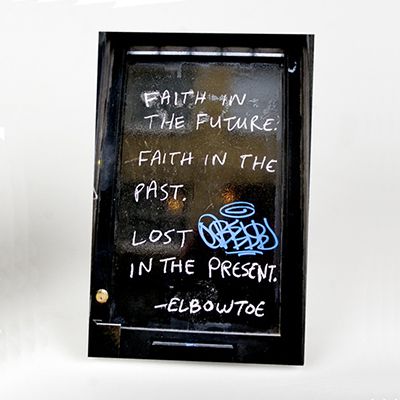 FAITH IN
THE FUTURE.
FAITH IN THE
PAST.
LOST
IN THE PRESENT.
-ELBOWTOE